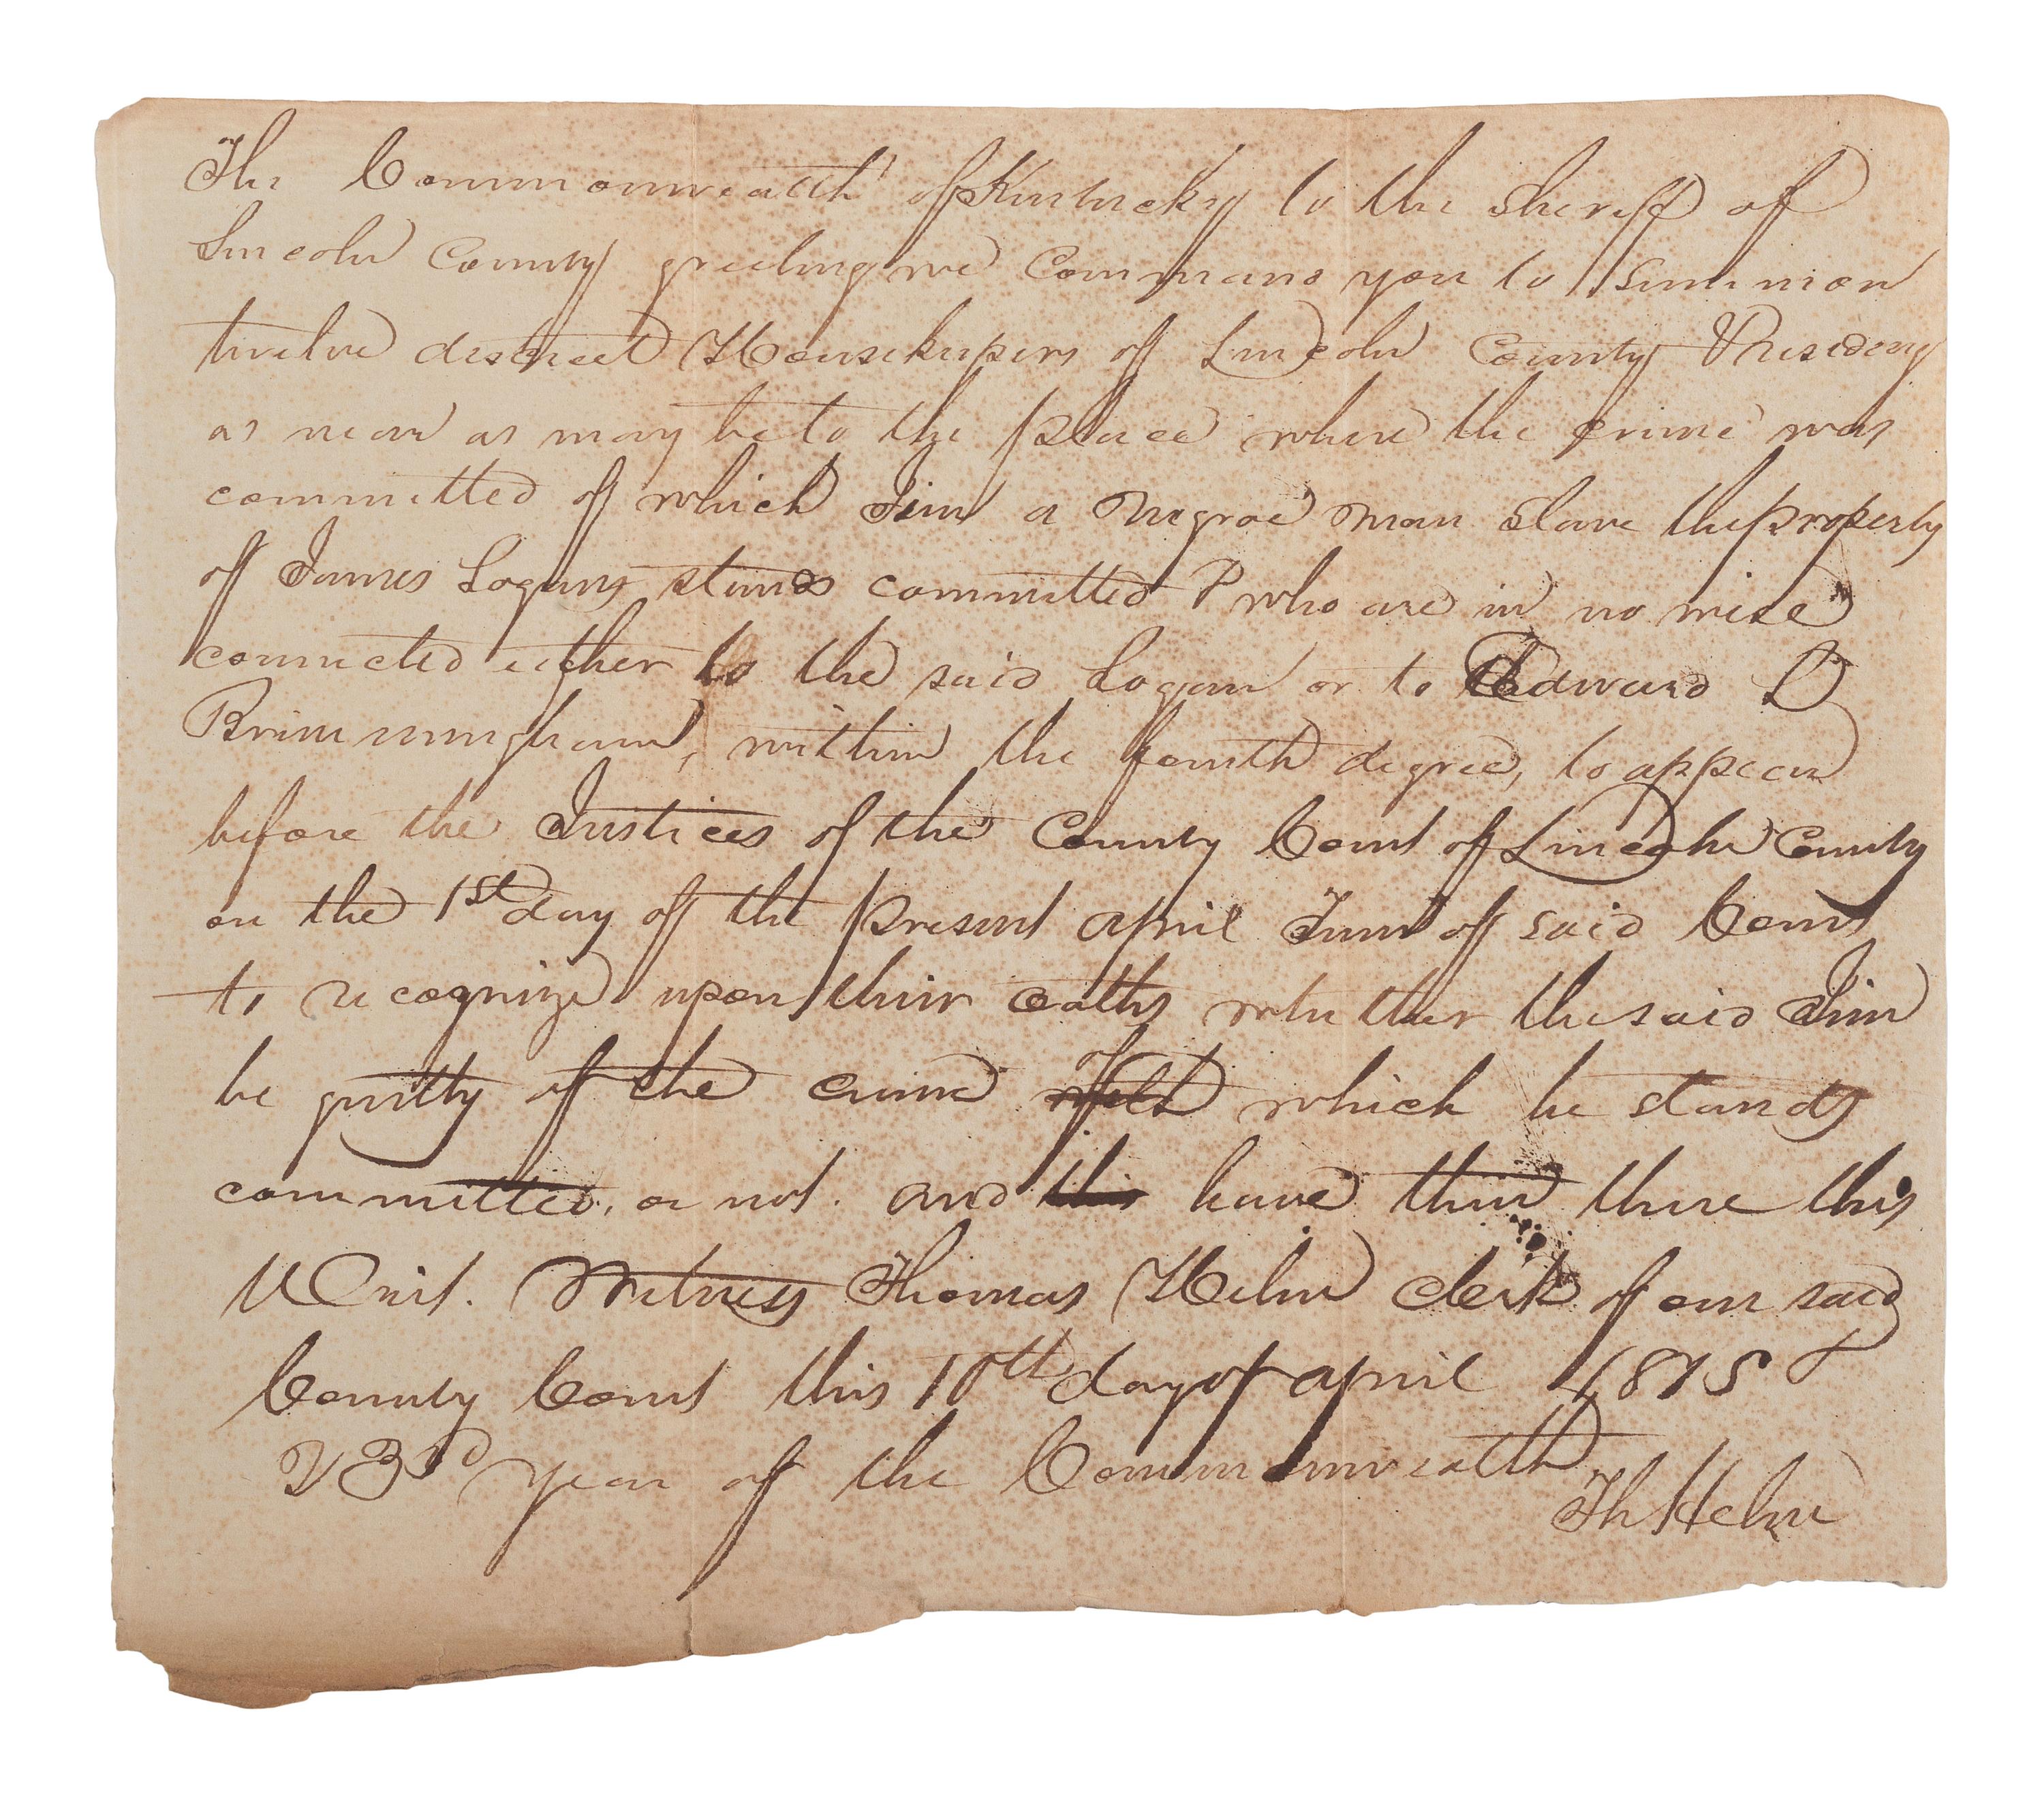 The Commonwealth of Kentucky to the Sheriff of
Lincoln County greeting we Command you to summon
twelve discreet Housekeepers of Lincoln County Residing
as near as may be to the place where the crime was
committed of which Jim a Negroe man slave the property
of James Logans stands committed & who are in no wise
connected either to the said Logan or to Edward D
Brimmingham, within the fourth degree, to appear
before the Justices of the County Court of Lincoln County
on the 1st day of the present april Term of said Court
to recognize upon their oaths whether the said Jim
be guilty of the crime of which he stands
committed, or not. and this have them there this
Writ. Witness Thomas Helm clerk of our said
County Court this 10th day of april 1815 &
23d year of the Commonwealth
Th Helm